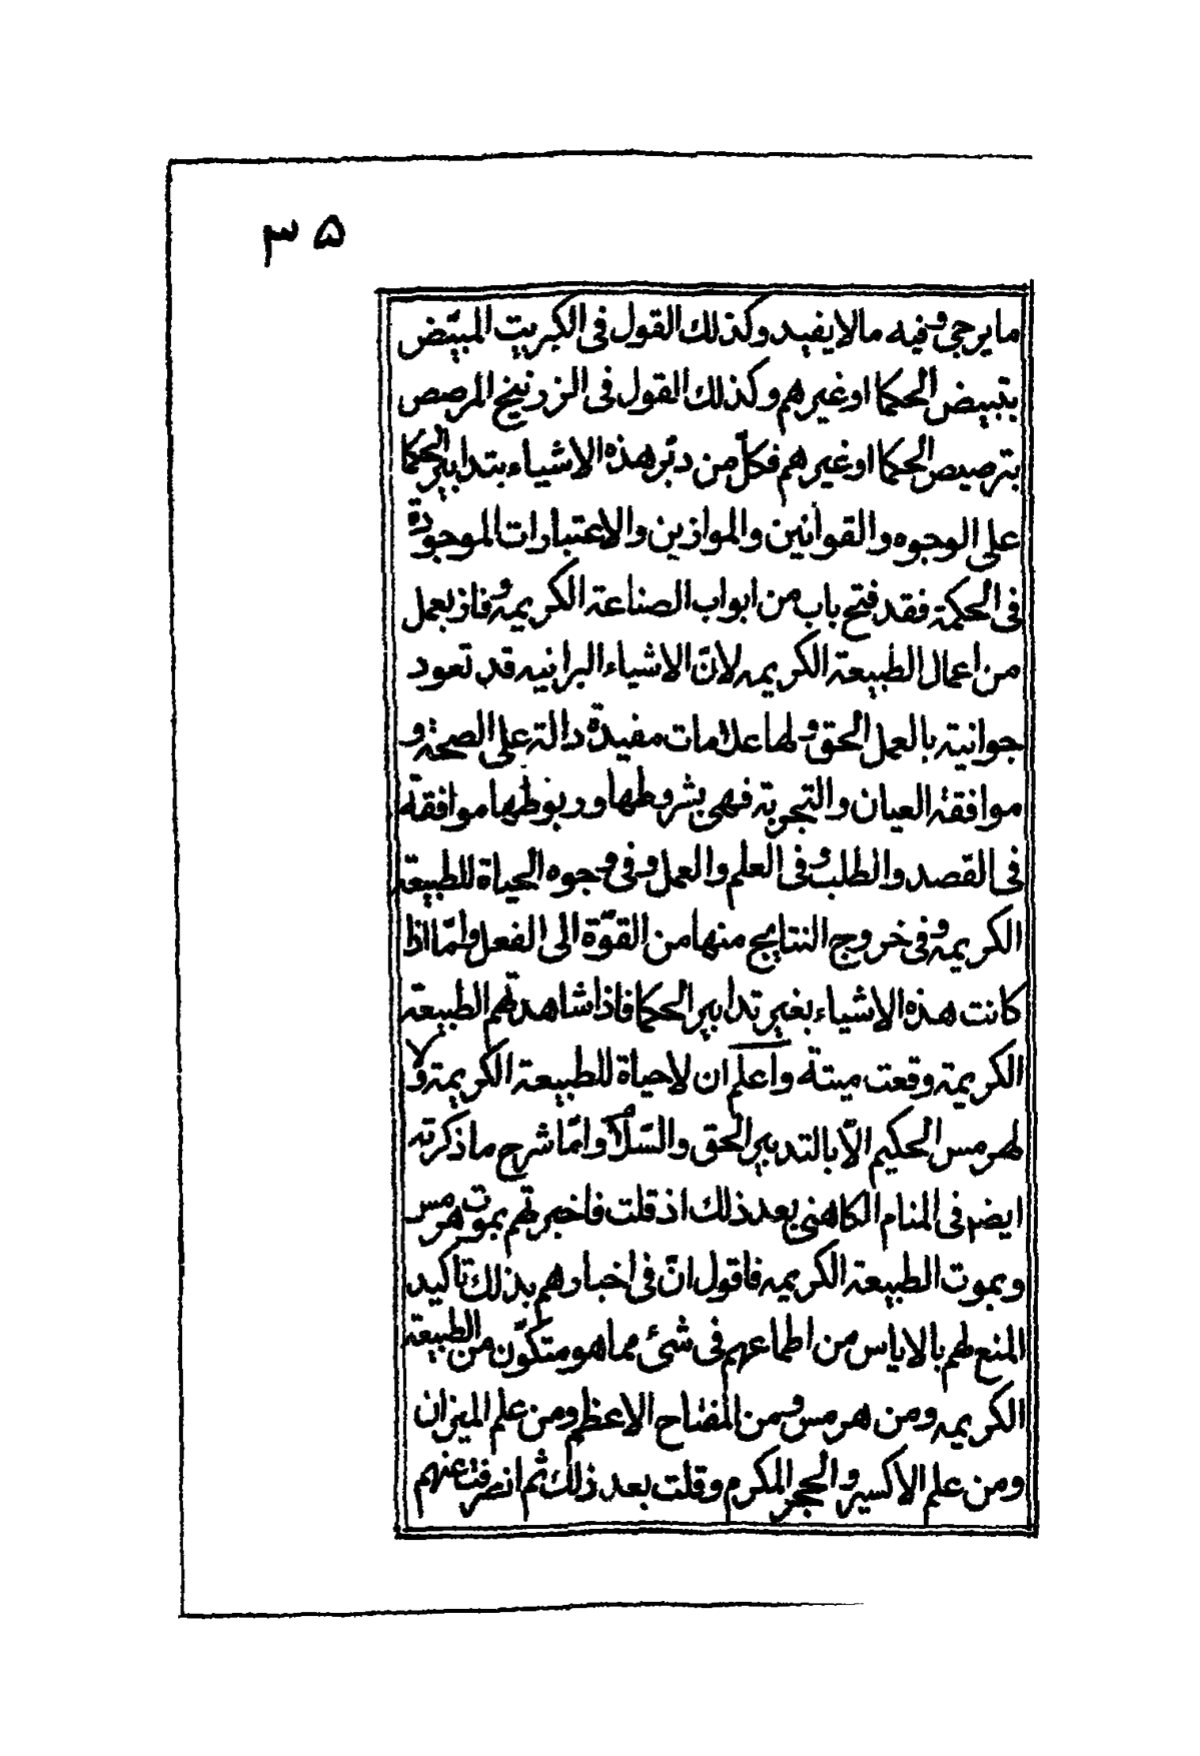 ٣۵
ما يرجى وفيه ما لا يفيد وكذلك القول فى الكبريت المبيّض
بتبييض الحكما او غيرهم وكذلك القول فى الزرنيخ المرصص
بترصيص الحكما او غيرهم فكلّ من دبّر هذه الاشياء بتدابير الحكما
على الوجوه والقوانين والموازين والاعتبارات الموجودة
فى الحكمة فقد فتح باب من ابواب الصناعة الكريمة وفاز بعمل
من اعمال الطبيعة الكريمه لانّ الاشياء البرانيه قد تعود
جوانية بالعمل الحق ولها علامات مفيدة دالة على الصحة و
موافقة العيان والتجربة فهى بشروطها وربوطها موافقة
فى القصد والطلب وفى العلم والعمل وفى وجوه الحياة للطبيعة
الكريمه وفى خروج النتايج منها من القوّة الى الفعل ولمّا اذا
كانت هذه الاشياء بغير تدابير الحكما فاذا شاهدتهم الطبيعة
الكريمة وقعت ميتة واعلم ان لاحياة للطبيعة الكريمة ولا
لهرمس الحكيم الّا بالتدبير الحق والسّلام وامّا شرح ما ذكرته
ايضا فى المنام الكاهنى بعد ذلك اذ قلت فاخبرتهم بموت هرمس
وبموت الطبيعة الكريمه فاقول انّ فى اخبارهم بذلك تاكيد
المنع لهم بالاياس من اطماعهم فى شىء مما هو متكوّن من الطبيعة
الكريمه ومن هرمس ومن المفتاح الاعظم ومن علم الميزان
ومن علم الاكسير والحجر المكرم وقلت بعد ذلك ثم انصرفت عنهم